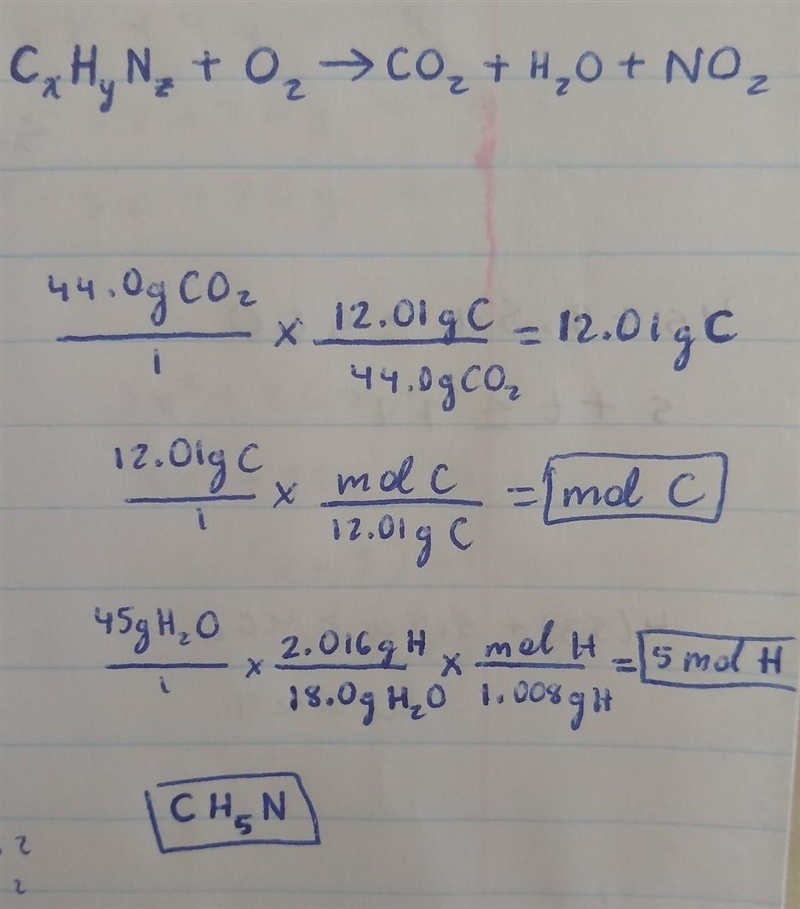 CxHyNz + O₂ → CO₂ + H₂O + NO₂
44.0g CO₂ / 1 × 12.01g C / 44.0g CO₂ = 12.01g C
12.01g C / 1 × mol C / 12.01g C = mol C
45g H₂O / 1 × 2.016g H / 18.0g H₂O × mol H / 1.008g H = 5 mol H
CH₅N
2
2